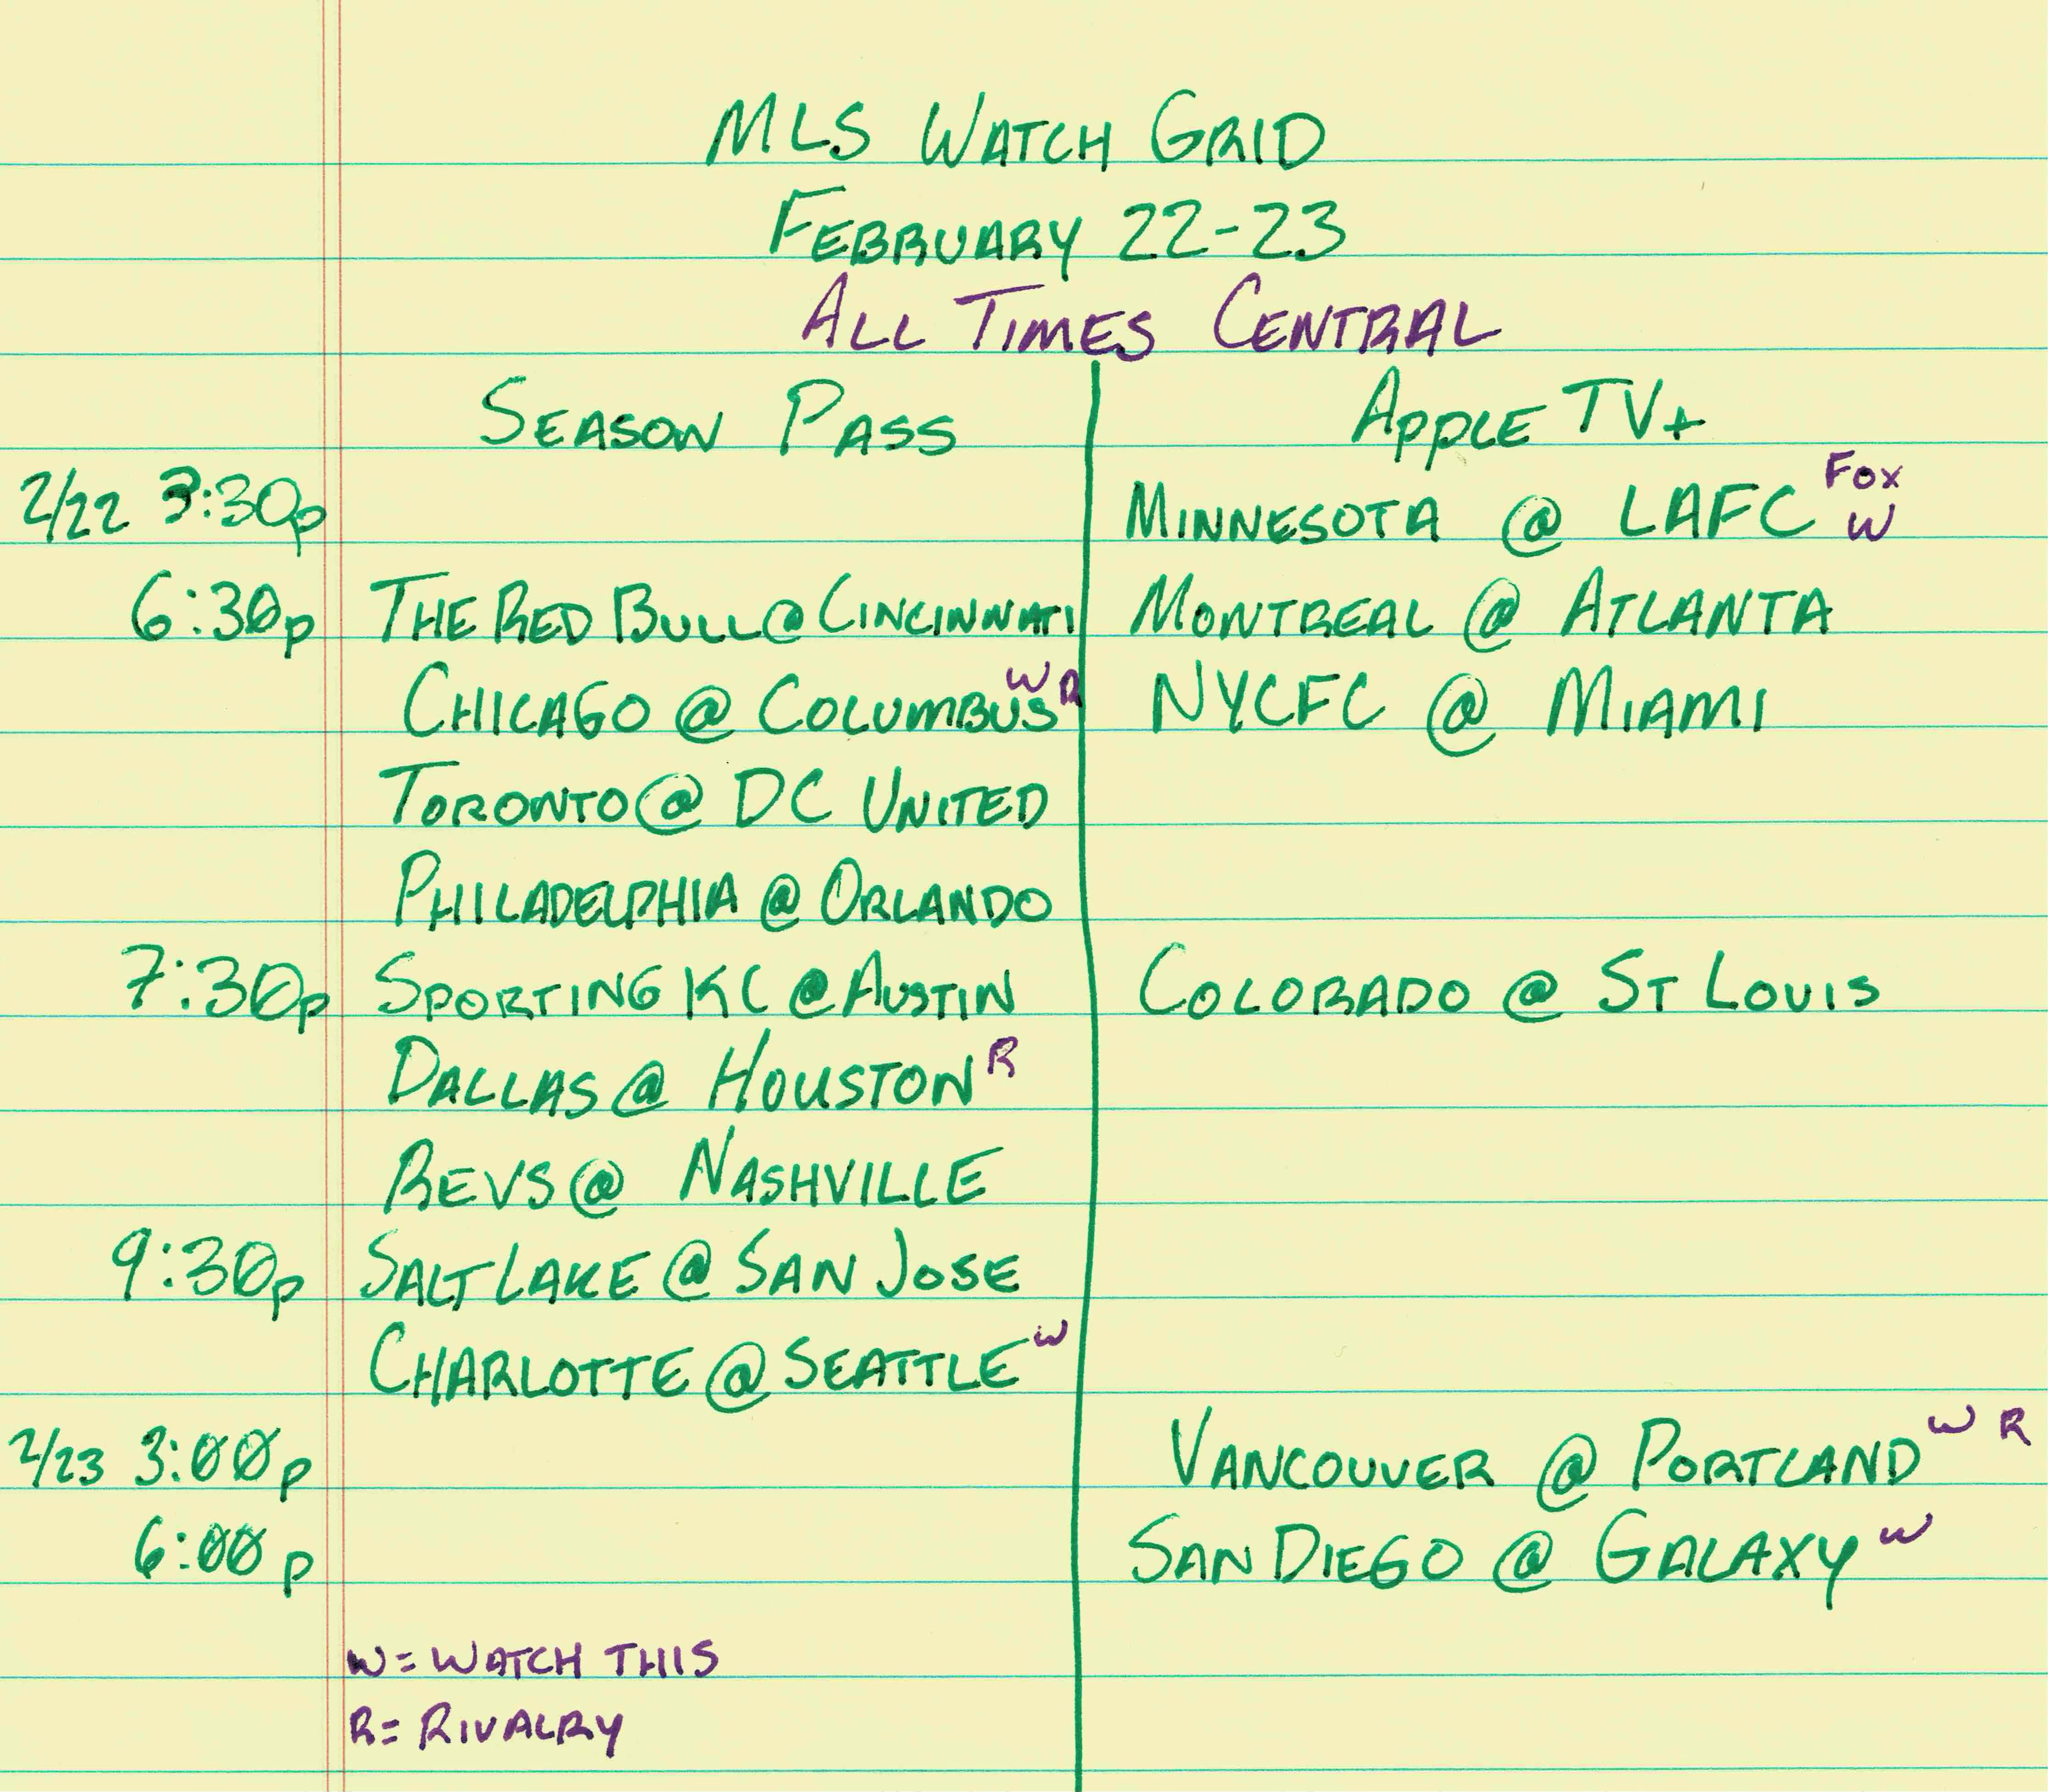 MLS WATCH GRID
FEBRUARY 22-23
ALL TIMES CENTRAL
SEASON PASS APPLE TV+
2/22 3:30p MINNESOTA @ LAFC FOX W
6:30p THE RED BULL @ CINCINNATI MONTREAL @ ATLANTA
CHICAGO @ COLUMBUS W R NYCFC @ MIAMI
TORONTO @ DC UNITED
PHILADELPHIA @ ORLANDO
7:30p SPORTING KC @ AUSTIN COLORADO @ ST LOUIS
DALLAS @ HOUSTON R
REVS @ NASHVILLE
9:30p SALT LAKE @ SAN JOSE
CHARLOTTE @ SEATTLE W
2/23 3:00p VANCOUVER @ PORTLAND W R
6:00p SAN DIEGO @ GALAXY W
W = WATCH THIS
R = RIVALRY